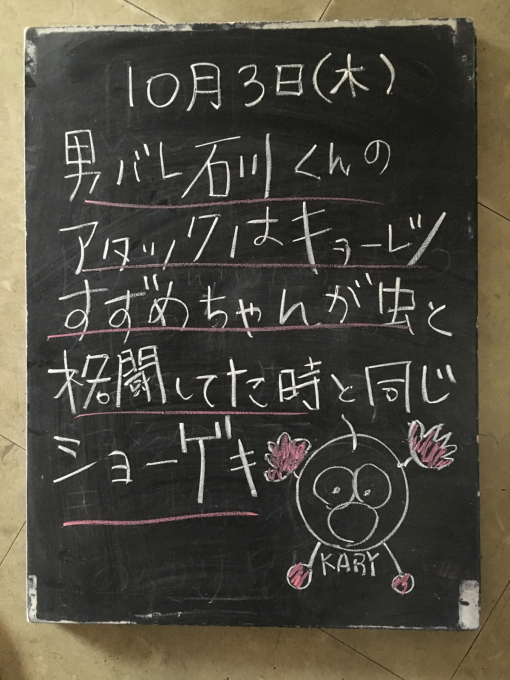 10月3日(木)
男バレ石川くんの
アタックはキョーレツ
すずめちゃんが虫と
格闘してた時と同じ
ショーゲキ
KARY